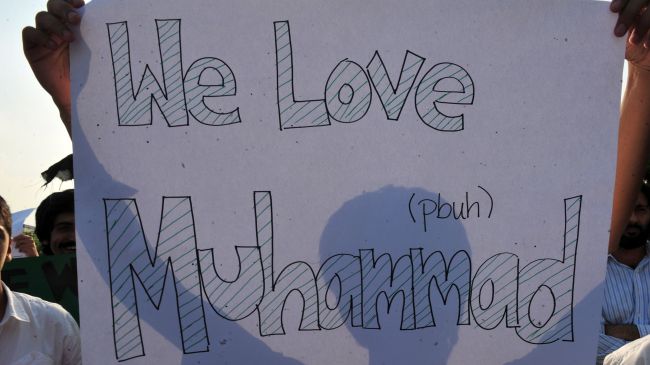 We Love
(pbuh)
Muhammad